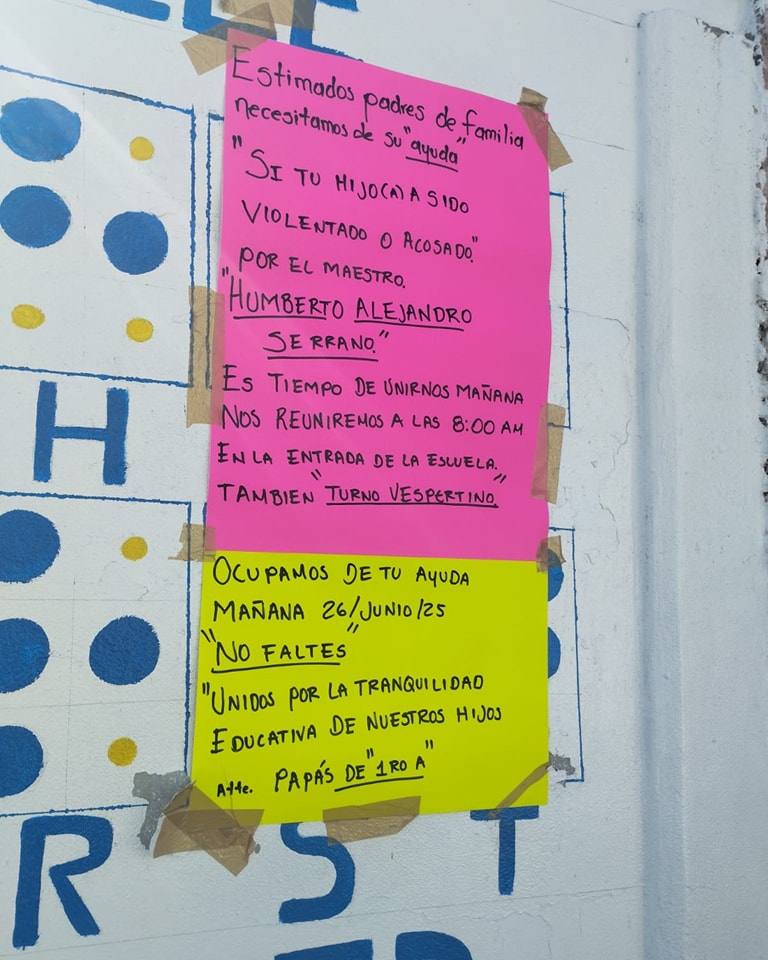 Estimados padres de familia
necesitamos de su "ayuda"
"SI TU HIJO(A) A SIDO
VIOLENTADO O ACOSADO."
POR EL MAESTRO.
"HUMBERTO ALEJANDRO
SERRANO."
ES TIEMPO DE UNIRNOS MAÑANA
NOS REUNIREMOS A LAS 8:00 AM
EN LA ENTRADA DE LA ESCUELA.
TAMBIEN "TURNO VESPERTINO."
OCUPAMOS DE TU AYUDA
MAÑANA 26/JUNIO/25
"NO FALTES"
"UNIDOS POR LA TRANQUILIDAD
EDUCATIVA DE NUESTROS HIJOS
Atte. PAPÁS DE "1RO A"
H
R S T